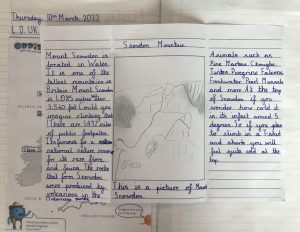 Thursday 10th March 2022
L.O. UK
Snowdon Mountain
Mount Snowdon is
located in Wales.
It is one of the
tallest mountains in
Britain. Mount Snowdon
is 1,085 metres
3,560 Could you
imagine climbing that
There are 1,497 km
of public footpaths.
national nature reserve
for its rare flora
and fauna. The rocks
that form Snowdon
were produced by
volcanoes in the
This is a picture of Mount
Snowdon.
Animals such as
Pine Martens, Choughs,
Twites, Peregrine Falcons
Freshwater Pearl Mussels
and more. At the top
of Snowdon if you
wonder how cold it
is, its infact around 5
degrees. So if you plan
to climb in a T-shirt
and shorts you will
feel quite cold at the
top.